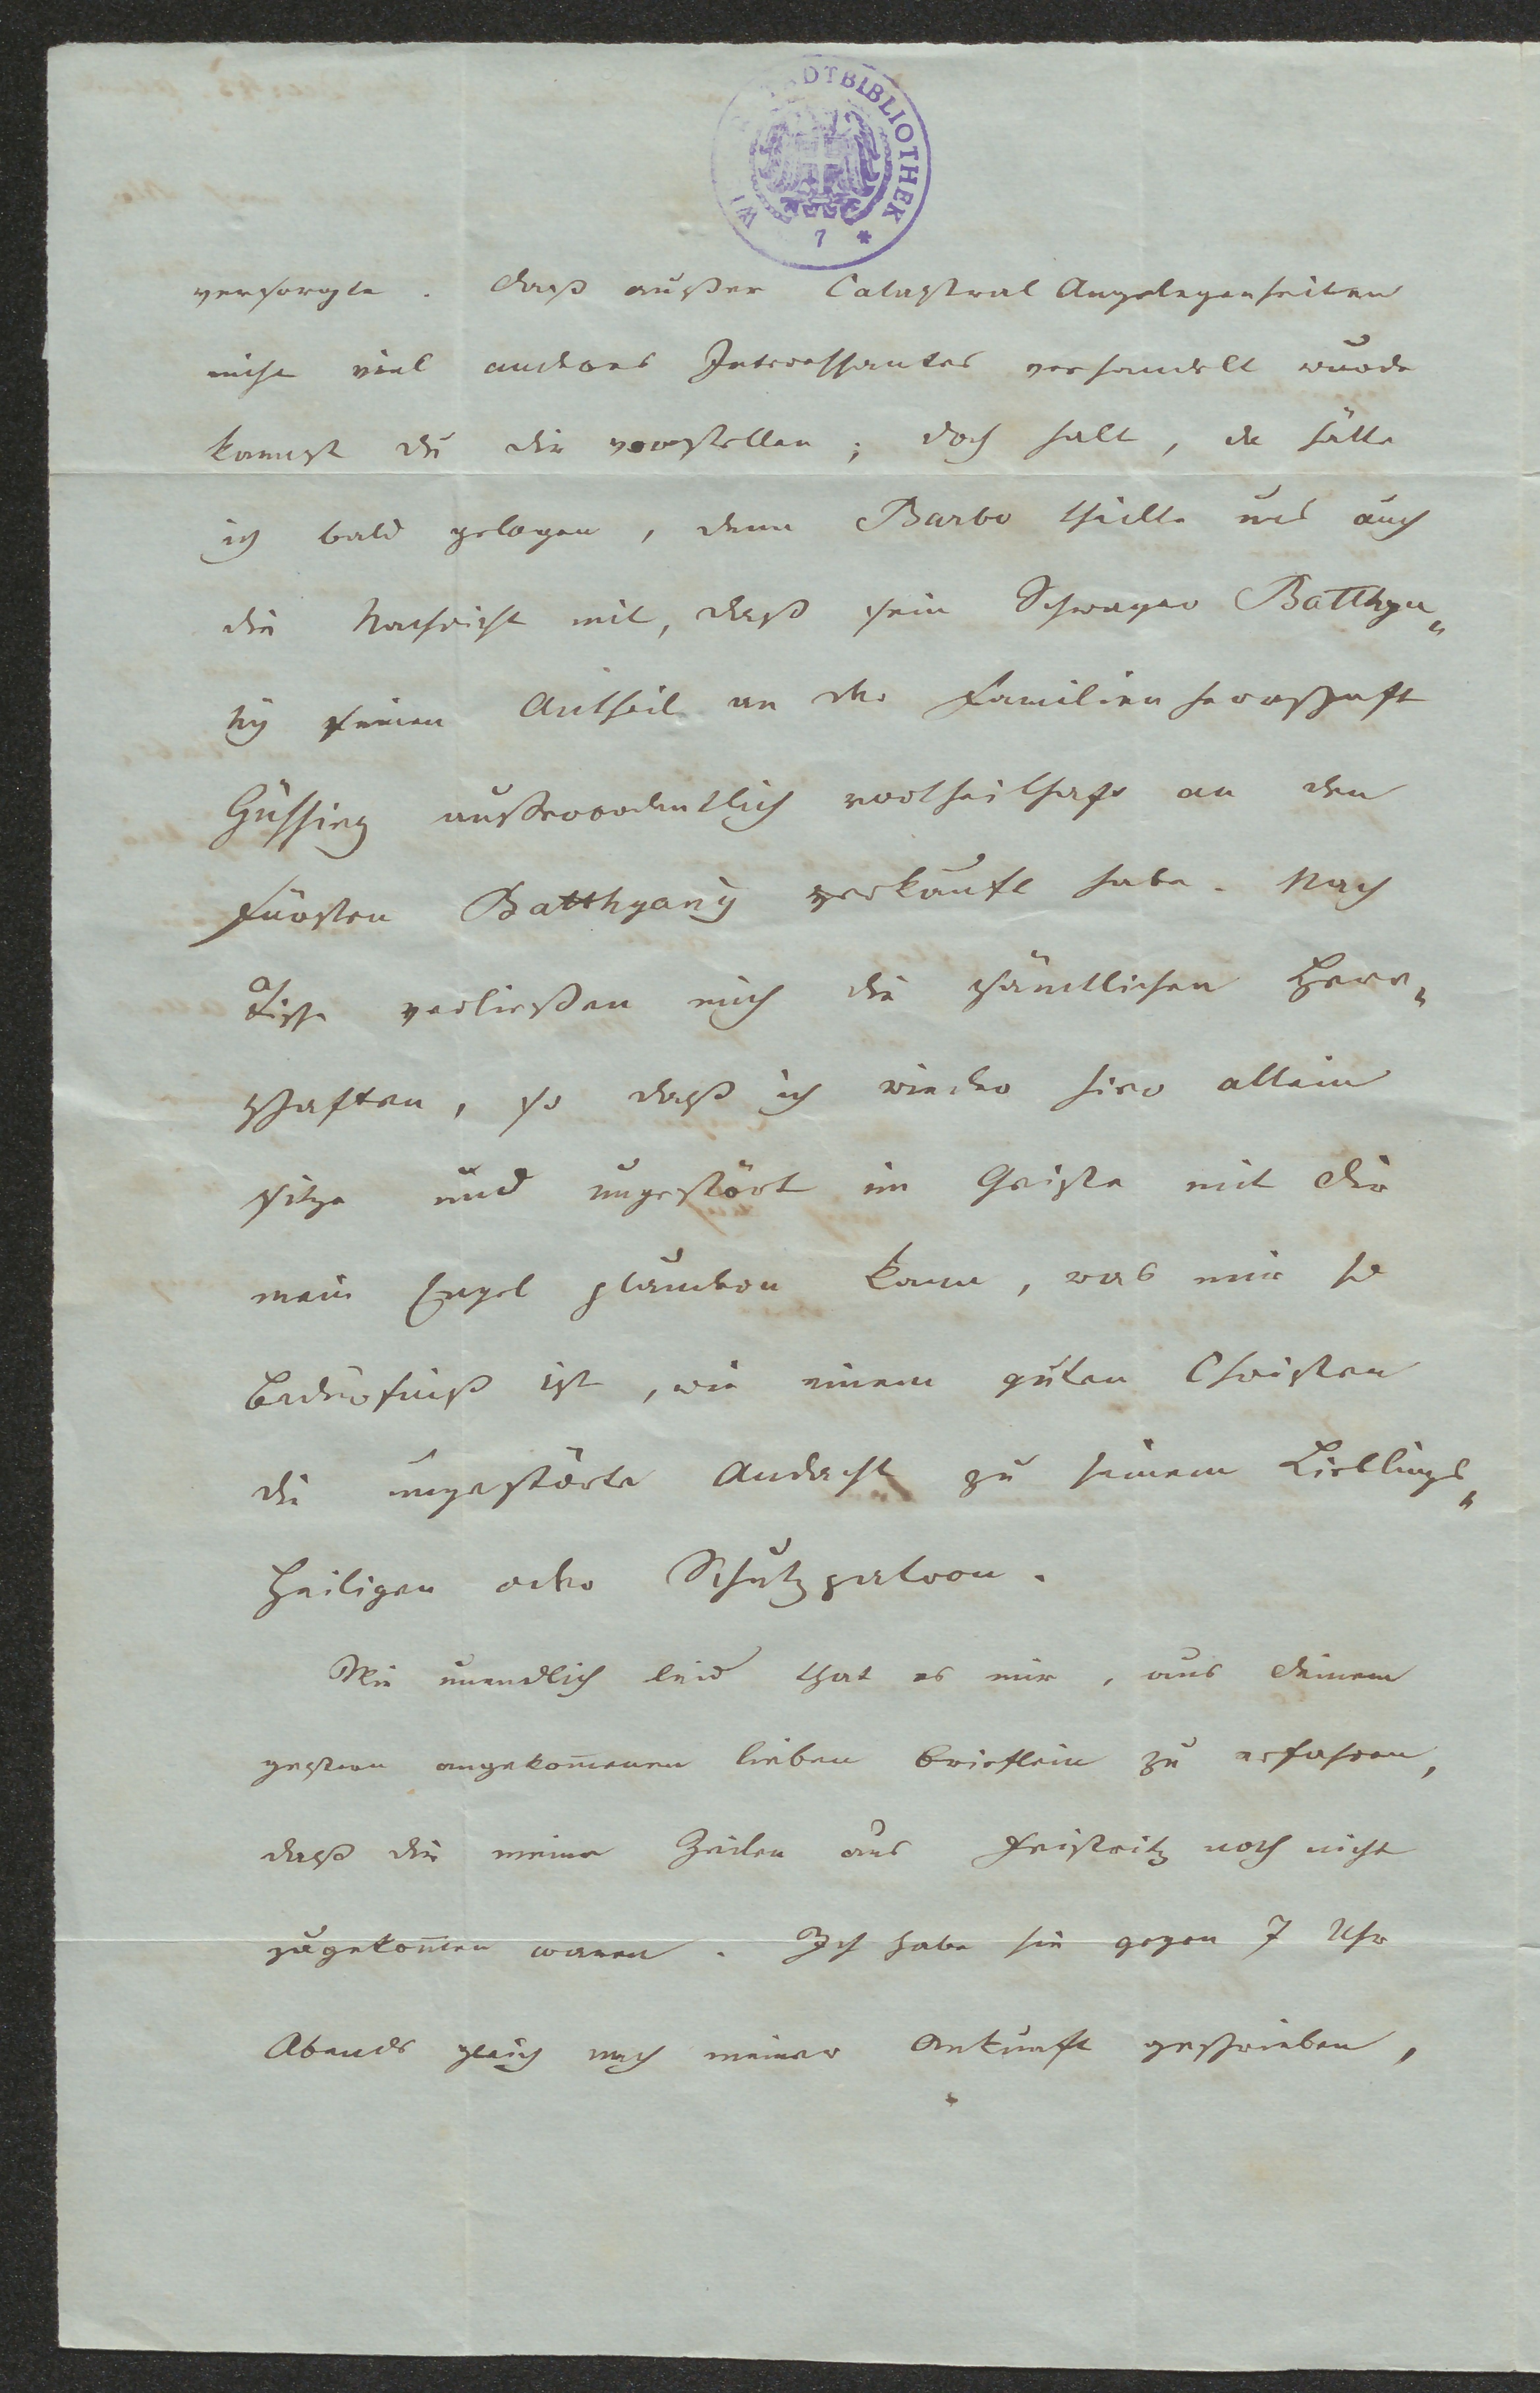 WI STADTBIBLIOTHEK
7 *
versorgte. Daß außer Catastral Angelegenheiten
nicht viel anderes Interessantes verhandelt wurde
kannst du dir vorstellen; doch halt, da hätte
ich bald gelogen, denn Barbo theilte uns auch
die Nachricht mit, daß sein Schwager Batthya„
ny seinen Antheil an der Familienherrschaft
Güssing außerordentlich vortheilhaft an den
Fürsten Batthyany verkauft habe. Nach
Tische verließen mich die sämtlichen Herr„
schaften, so daß ich wieder hier allein
sitze und ungestört im Geiste mit dir
mein Engel plaudern kann, was mir so
Bedürfniß ist, wie einem guten Christen
die ungestörte Andacht zu seinem Lieblings„
Heiligen oder Schutzpatron.
Wie unendlich leid that es mir, aus deinem
gestern angekom̅enen lieben Brieflein zu erfahren,
daß dir meine Zeilen aus Feistritz noch nicht
zugekom̅en waren. Ich habe sie gegen 7 Uhr
Abends gleich nach meiner Ankunft geschrieben,